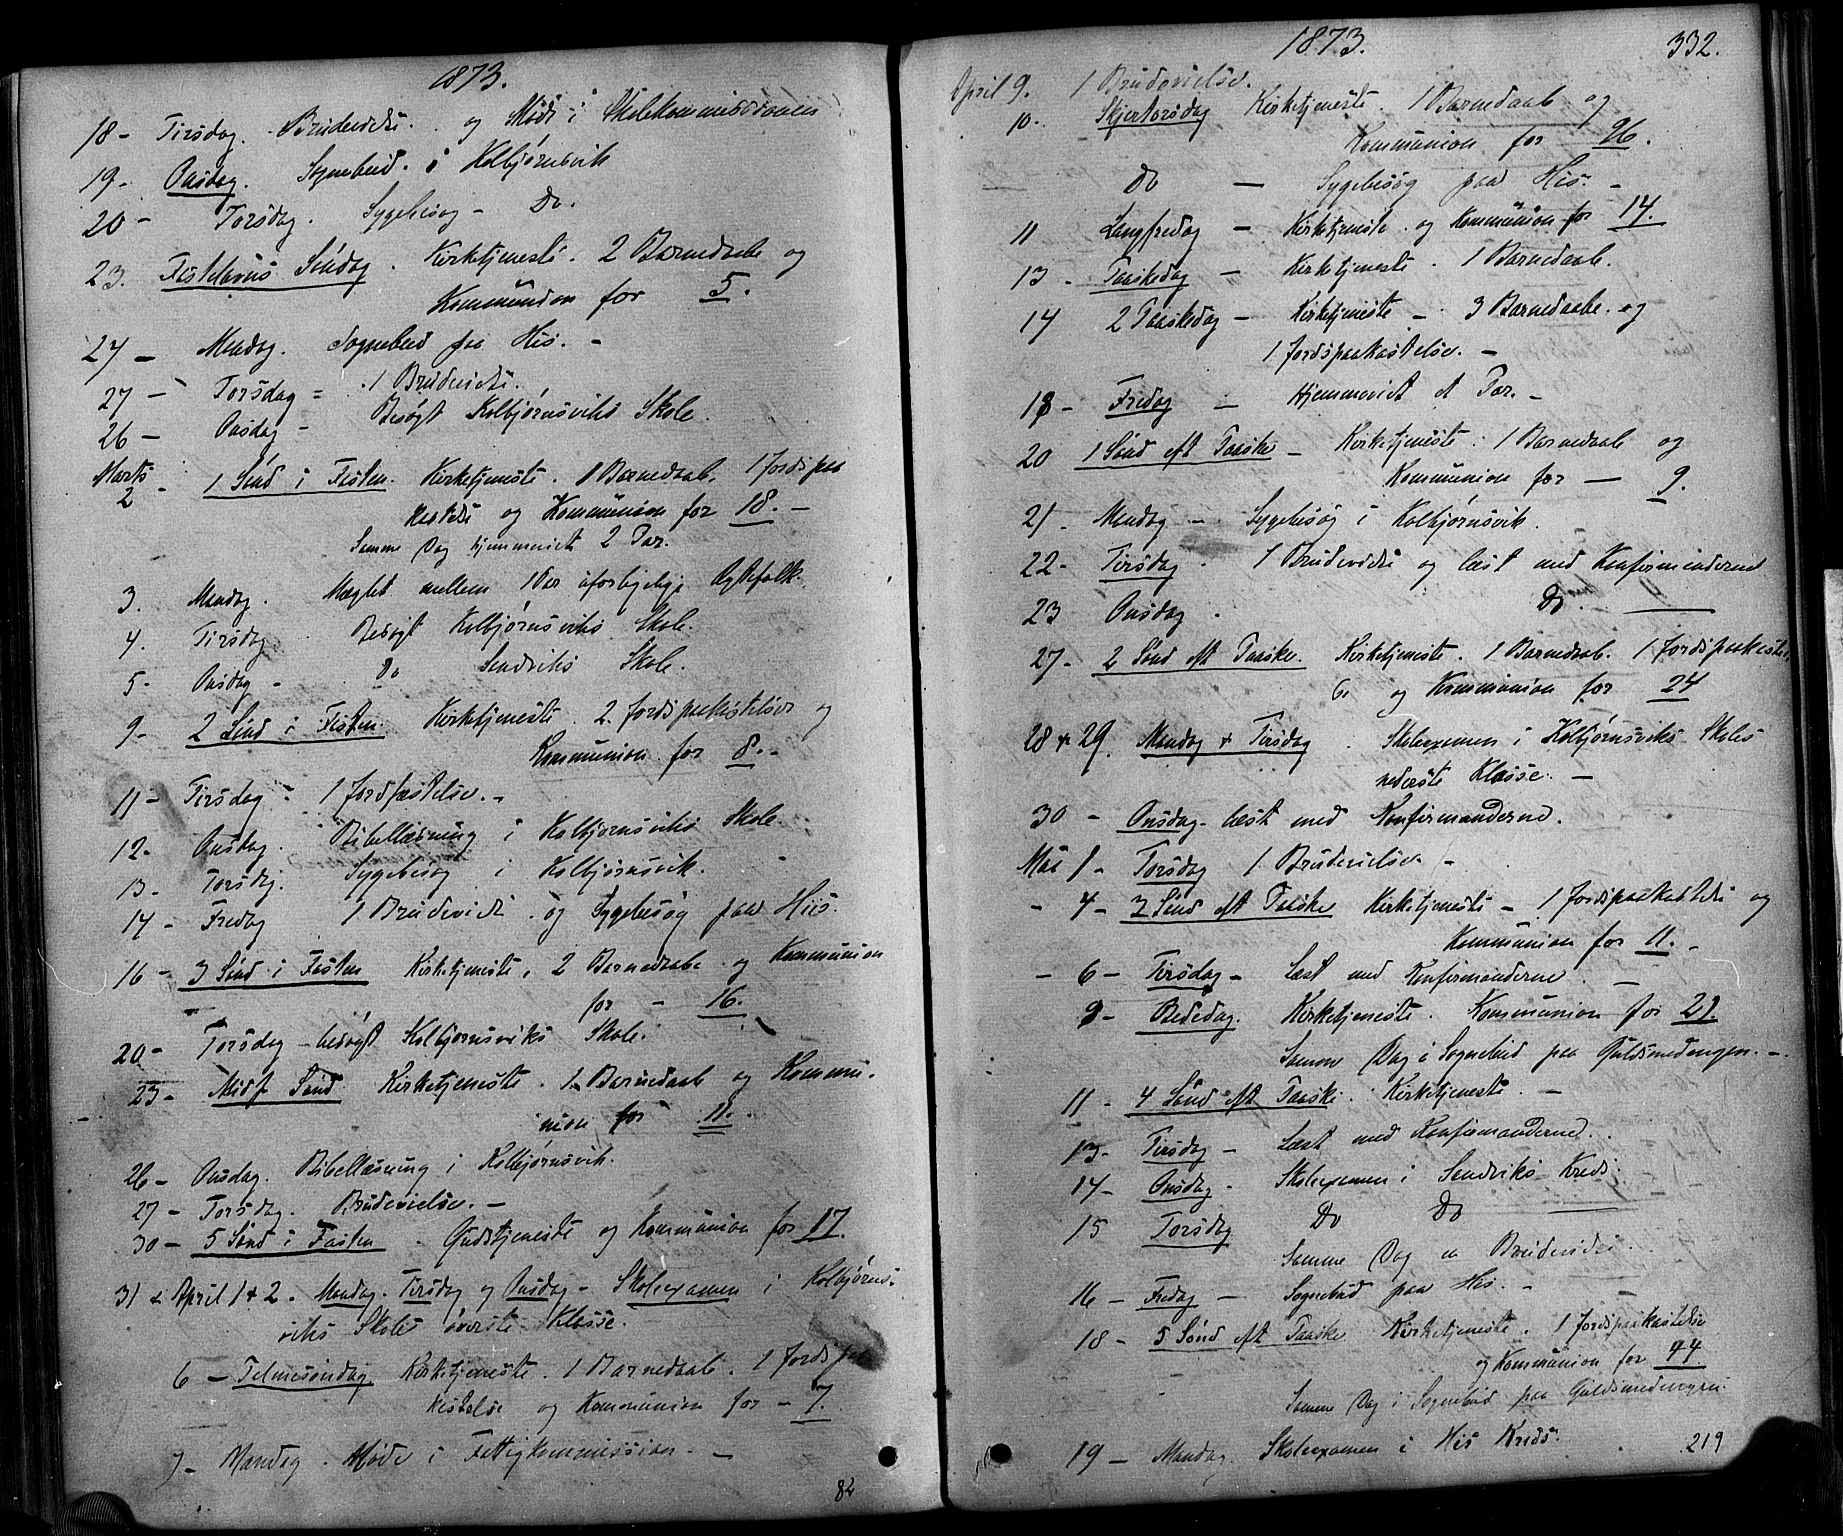 1873.
18 - Tirsdag. Brudevielse. og Møde i Skolekommissionen
19 - Onsdag. Sognebud. i Kolbjørnsvik
20 - Torsdag. Sygebesøg - Do.
23. Fastelavns Søndag. Kirketjeneste. 2 Barnedaabe og
Kommunion for 5.
24 - Mandag. Sognebud paa His. -
27 - Torsdag = 1 Brudevielse.
26 - Onsdag - Besøgt Kolbjørnsviks Skole.
Marts
2 - 1 Sønd i Fasten. Kirketjeneste. 1 Barnedaab. 1 Jordspaa
kastelse og Kommunion for 18. -
Samme Dag hjemmeviet 2 Par.
3. Mandag. Mæglet mellem Ægtefolk.
4. Tirsdag. Besøgt Kolbjørnsviks Skole.
5 - Onsdag - Do Sandviks Skole.
9 - 2 Sønd i Fasten. Kirketjeneste. 2. Jordspaakastelser og
Kommunion for 8. -
11 - Tirsdag - 1 Jordfæstelse. -
12 - Onsdag. Bibellæsning i Kolbjørnsviks Skole.
13 - Torsdag. Sygebesøg i Kolbjørnsvik.
14 - Fredag 1 Brudevielse. og Sygebesøg paa Hiis.
16 - 3 Sønd i Fasten Kirketjeneste, 2 Barnedaabe og Kommunion
for - 16.
20 - Torsdag - besøgt Kolbjørnsviks Skole.
23 - Midf Sønd Kirketjeneste. 1 Barnedaab og Kommu-
nion for 11.
26 - Onsdag. Bibellæsning i Kolbjørnsvik.
27 - Torsdag. Brudevielse. -
30 - 5 Sønd i Fasten. Gudstjeneste og Kommunion for 17.
31 & April 1 + 2. Mandag. Tirsdag og Onsdag - Skoleexamen i Kolbjørns-
viks Skoles øverste Klasse.
6 - Palmesøndag Kirketjeneste. 1 Barnedaab. 1 Jordspaa
kastelse og Kommunion for - 7.
7 - Mandag. Møde i Fattigkommissionen. -
82
1873.
332.
April 9. 1 Brudevielse.
10. Skjertorsdag Kirketjeneste. 1 Barnedaab og
Kommunion for 26.
Do - Sygebesøg paa His. -
11 Langfredag - Kirketjeneste. og Kommunion for 14.
13 - Paaskedag - Kirketjeneste. 1 Barnedaab.
14 2 Paaskedag - Kirketjeneste - 3 Barnedaabe. og
1 Jordspaakastelse. -
18 - Fredag - Hjemmeviet et Par. -
20 1 Sønd eft Paaske - Kirketjeneste. 1 Barnedaab og
Kommunion for - 9.
21 - Mandag - Sygebesøg i Kolbjørnsvik.
22 - Tirsdag. 1 Brudevielse og læst med Konfirmanderne
23 Onsdag. Do.
27 - 2 Sønd eft Paaske. Kirketjeneste. 1 Barnedaab. 1 Jordspaakastel-
se og Kommunion for 24
28 + 29. Mandag + Tirsdag. Skoleexamen i Kolbjørnsviks Skoles
nederste Klasse. -
30 - Onsdag - læst med Konfirmanderne.
Mai 1 - Torsdag 1 Brudevielse. -
- 4 - 3 Sønd eft Paaske Kirketjeneste - 1 Jordspaakastelse og
Kommunion for 11. -
- 6 - Tirsdag - Læst med Konfirmanderne. -
9 - Bededag. Kirketjeneste. Kommunion for 21.
Samme Dag i Sognebud paa Guldsmedengen. -
11 - 4 Sønd eft Paaske. Kirketjeneste. -
13 - Tirsdag - Læst med Konfirmanderne.
14 - Onsdag - Skoleexamen i Sandviks Kreds.
15 Torsdag Do Do
Samme Dag Brudevielse.
16 - Fredag - Sognebud paa His. -
18 - 5 Sønd eft Paaske Kirketjeneste. 1 Jordspaakastelse
og Kommunion for 44
Samme Dag i Sognebud paa Guldsmedengen
19 - Mandag. Skoleexamen i His Kreds.
219